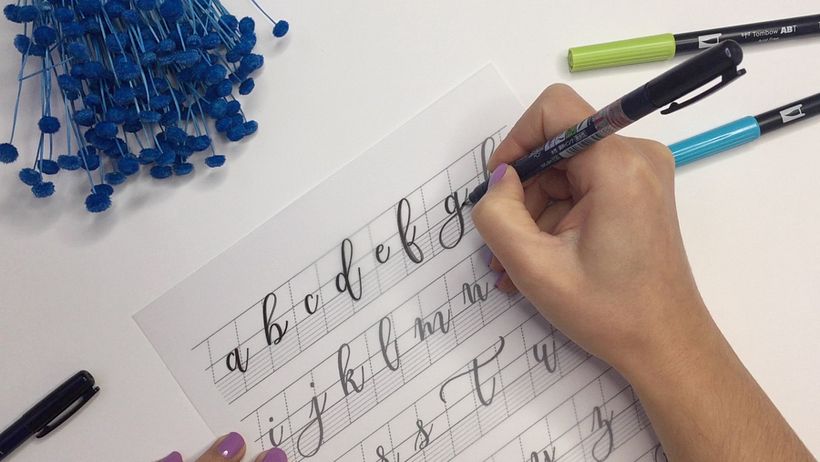 a b c d e f g h
i j k l m n
s T u
z
Tombow ABT